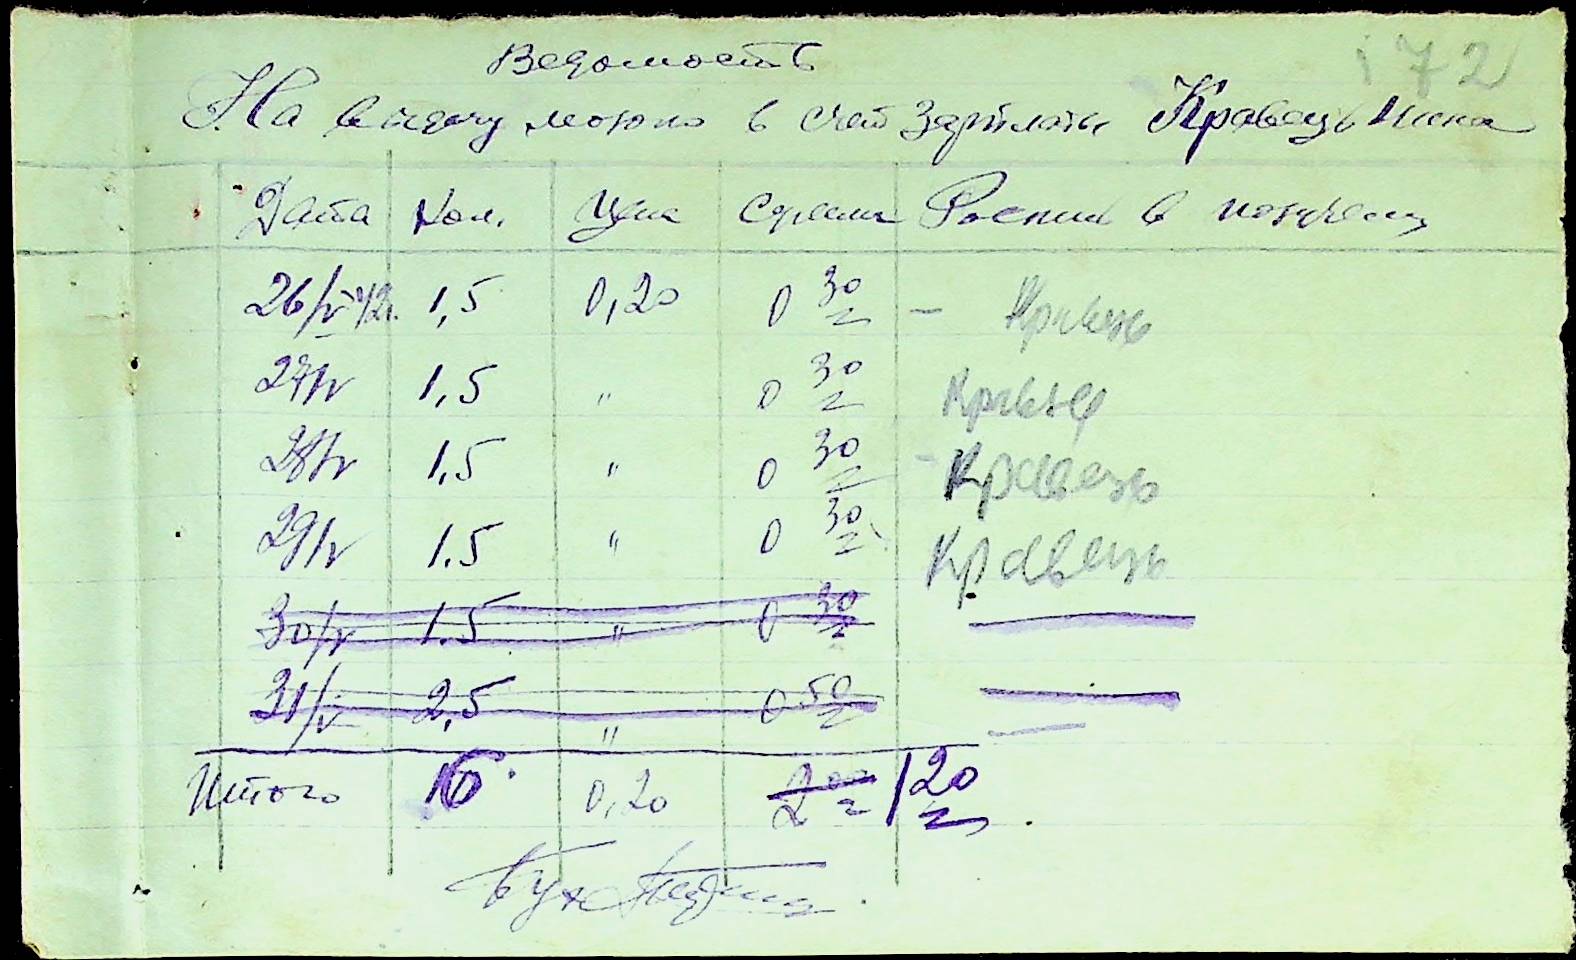 172
Ведомость
На выдачу молока в счет зарплаты Кравець Нина
Дата Кол. Цена Сумма Роспись в получении
26/V 42г. 1,5 0,20 0 30 Кравець
27/V 1,5 " 0 30 Кравец
28/V 1.5 " 0 30 Кравець
29/V 1.5 " 0 30 Кравець
30/V 1.5 " 0 30
31/V 2,5 " 0 50
Итого 0,20 2 00 1 20
Бух